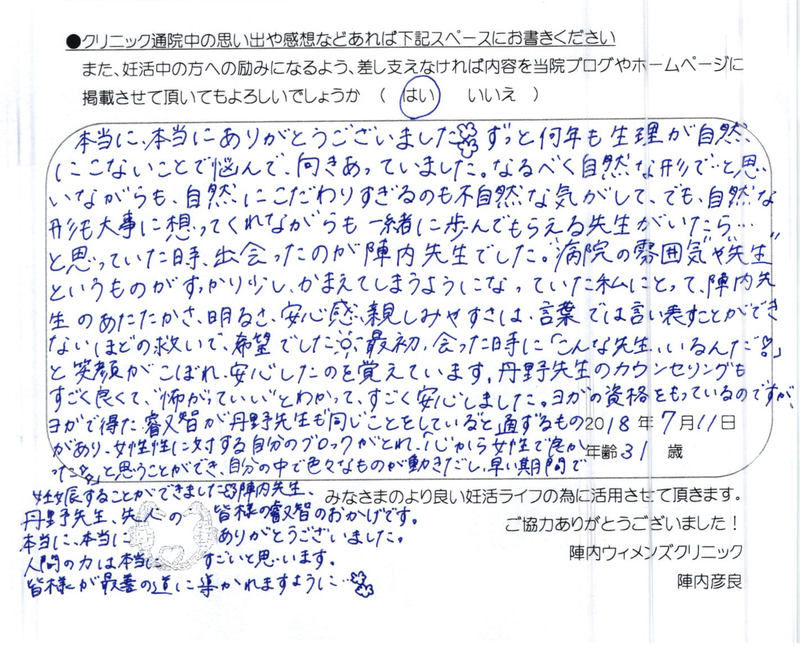 ●クリニック通院中の思い出や感想などあれば下記スペースにお書きください
また、妊活中の方への励みになるよう、差し支えなければ内容を当院ブログやホームページに
掲載させて頂いてもよろしいでしょうか （ はい いいえ ）
本当に、本当にありがとうございました ずっと何年も生理が自然
にこないことで悩んで、向きあっていました。なるべく自然な形で…と思
いながらも、自然にこだわりすぎるのも不自然な気がして、でも、自然な
形も大事に想ってくれながらも一緒に歩んでもらえる先生がいたら…
と思っていた時、出会ったのが陣内先生でした。"病院の雰囲気や先生"
というものがすっかり少し、かまえてしまうようになっていた私にとって、陣内先
生のあたたかさ、明るさ、安心感、親しみやすさは、言葉では言い表すことができ
ないほどの救いで、希望でした 最初、会った時に「こんな先生、いるんだ!」
と笑顔がこぼれ、安心したのを覚えています。丹野先生のカウンセリングも
すごく良くて、"怖がっていい"とわかって、すごく安心しました。ヨガの資格をもっているのですが、
ヨガで得た、叡智が丹野先生も同じことをしていると通ずるもの
2018年7月11日
があり、女性性に対する自分のブロックがとれ、「心から女性で良か
年齢31 歳
った 」と思うことができ、自分の中で色々なものが動きだし、早い期間で
妊娠することができました 陣内先生、
みなさまのより良い妊活ライフの為に活用させて頂きます。
丹野先生、先人の 皆様の叡智のおかげです。
ご協力ありがとうございました！
本当に、本当に ありがとうございました。
陣内ウィメンズクリニック
人間の力は本当に すごいと思います。
陣内彦良
皆様が最善の道に導かれますように…